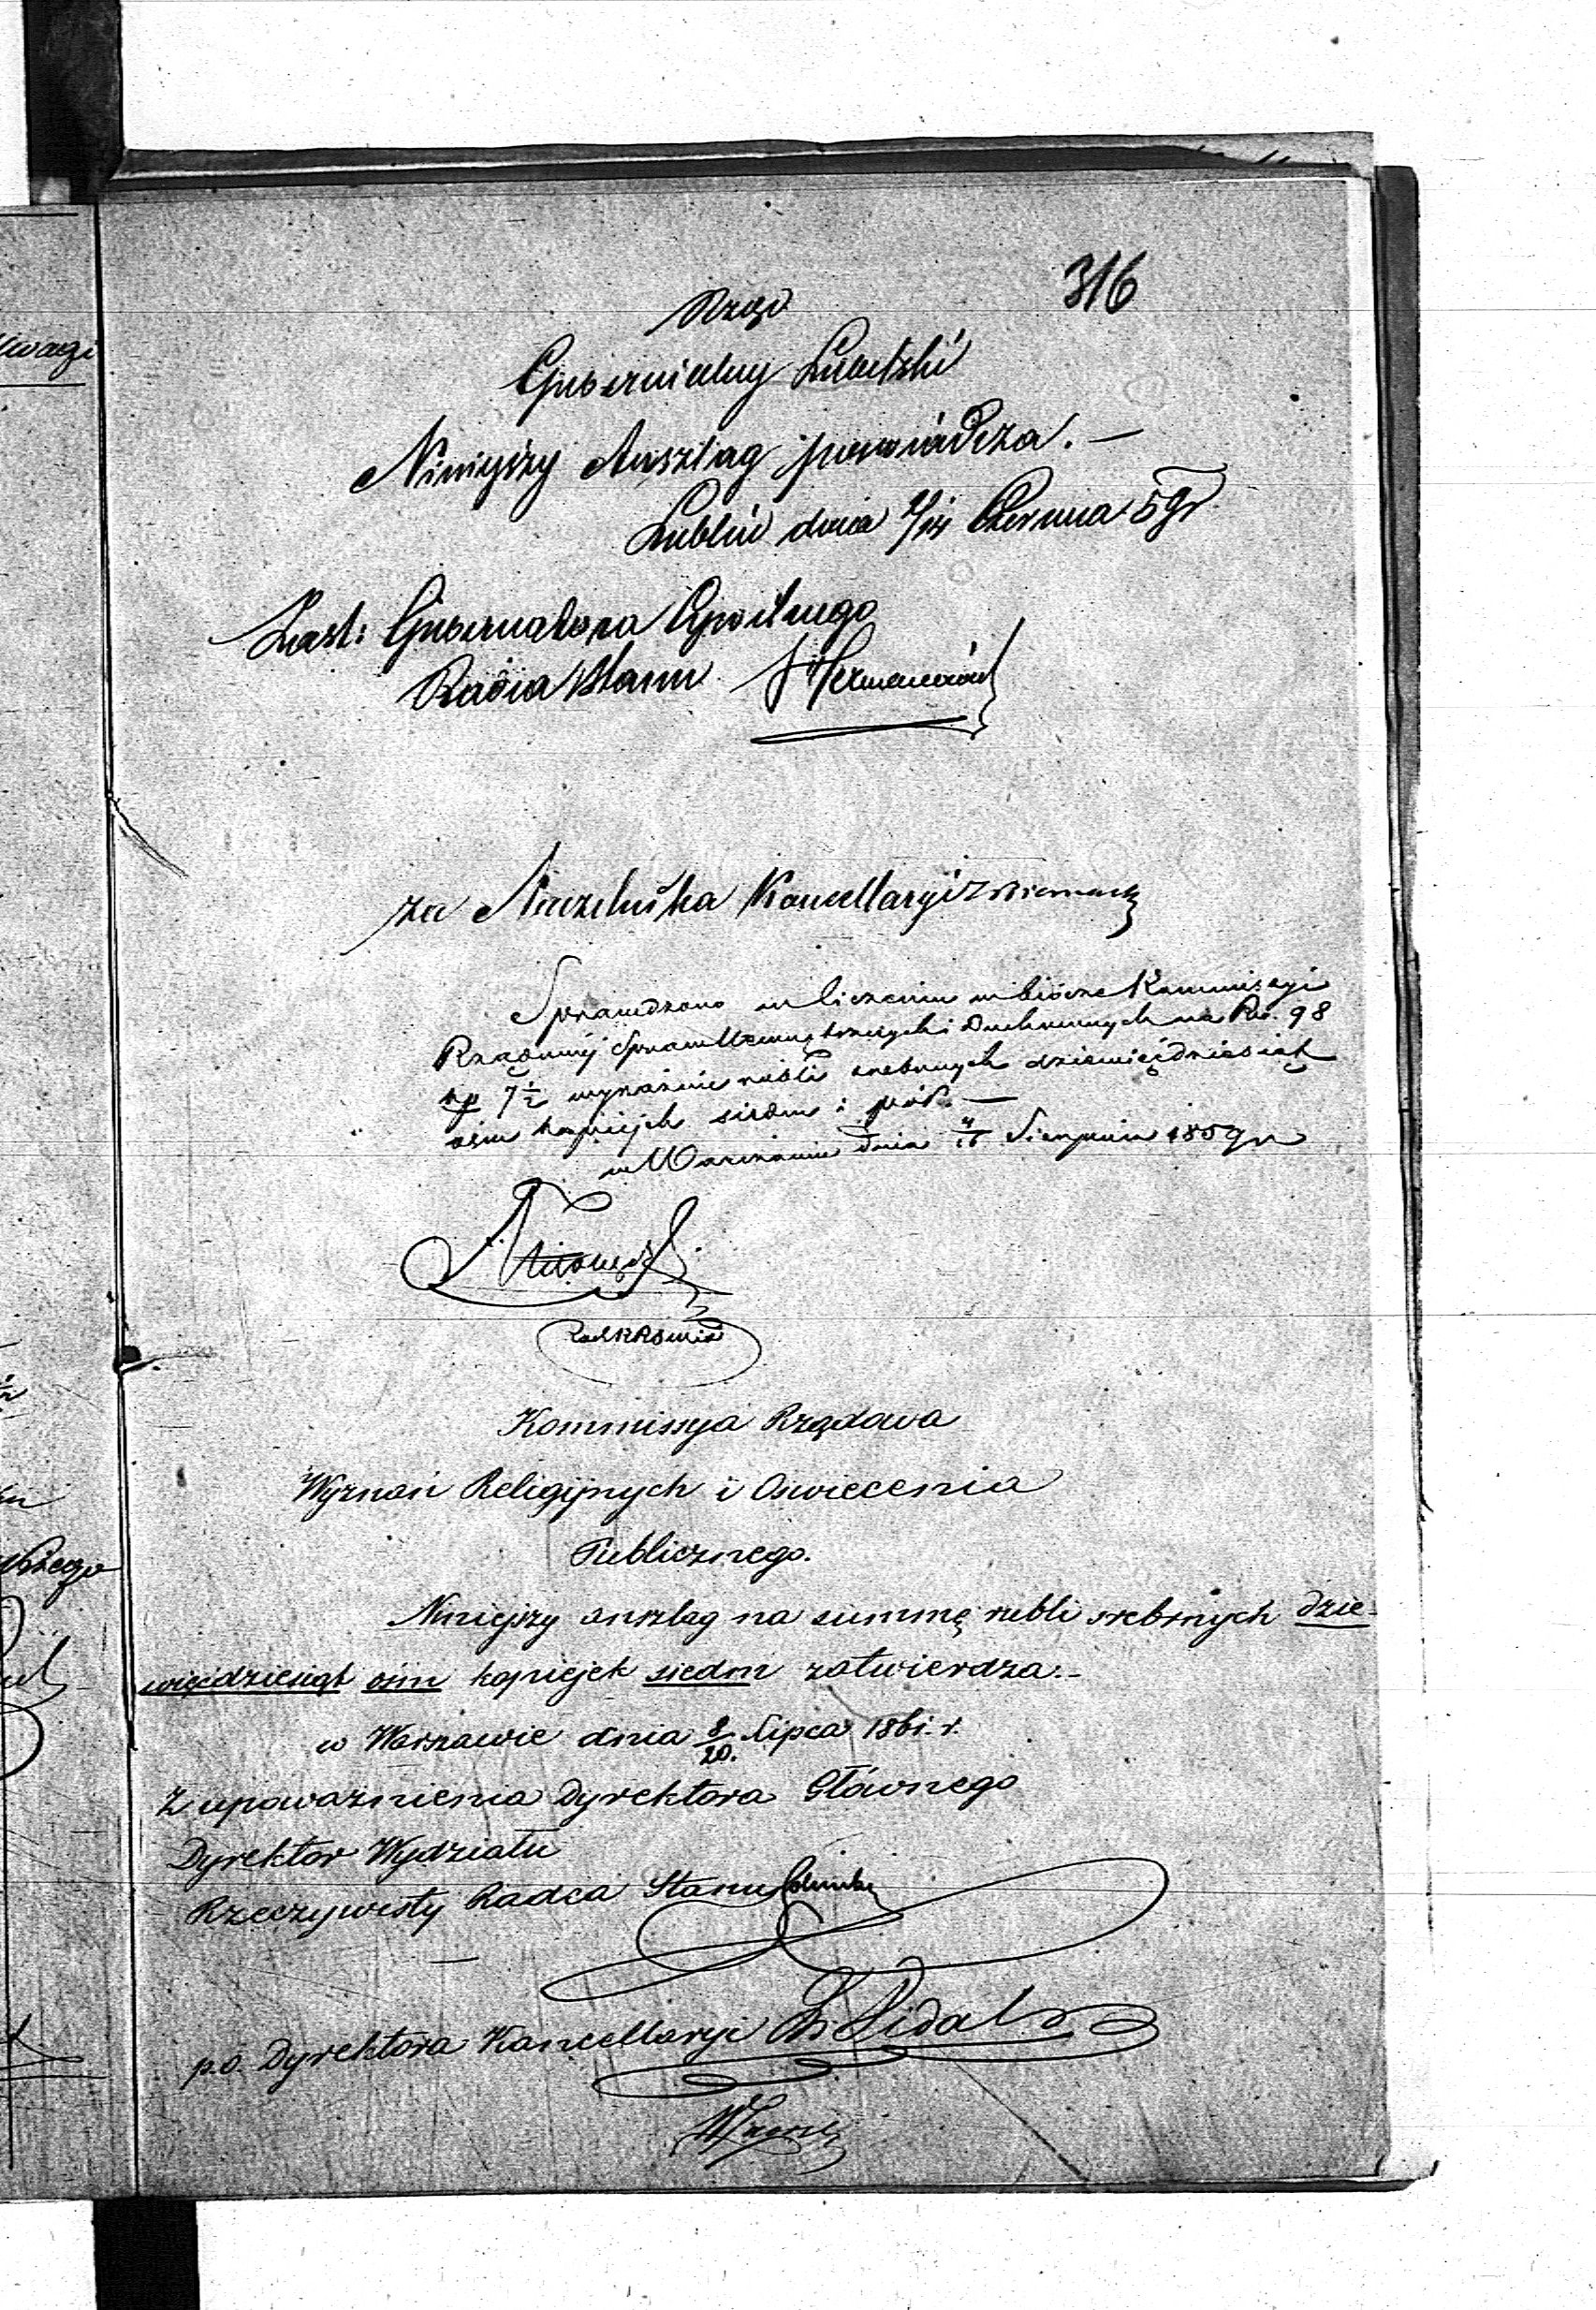 316
Rząd
Gubernialny Lubelski
Niniejszy Anszlag poswiadcza. —
Lublin dnia Czerwca 59 r
Zast: Gubernatora Cywilnego
Radca Stanu
za Naczelnika Kancellaryi
Sprawdzono w liczeniu w biórze Kommissyi
Rządowéj Spraw Wewnętrznych i Duchownych na Rs. 98
kp 7½ wyraźnie rubli srebrnych dziewięćdziesiąt
ośm kopiejek siedm i pół. —
w Warszawie dnia 4/16 Sierpnia 1859 r
Kommissya Rządowa
Wyznań Religijnych i Oswiecenia
Publicznego.
Niniejszy anszlag na summę rubli srebrnych dzie-
więćdziesiąt ośm kopiejek siedm zatwierdza.-
w Warszawie dnia 8/20. Lipca 1861. r.
Z upoważnienia Dyrektora Głównego
Dyrektor Wydziału
Rzeczywisty Radca Stanu
p.o. Dyrektora Kancellaryi
wagi